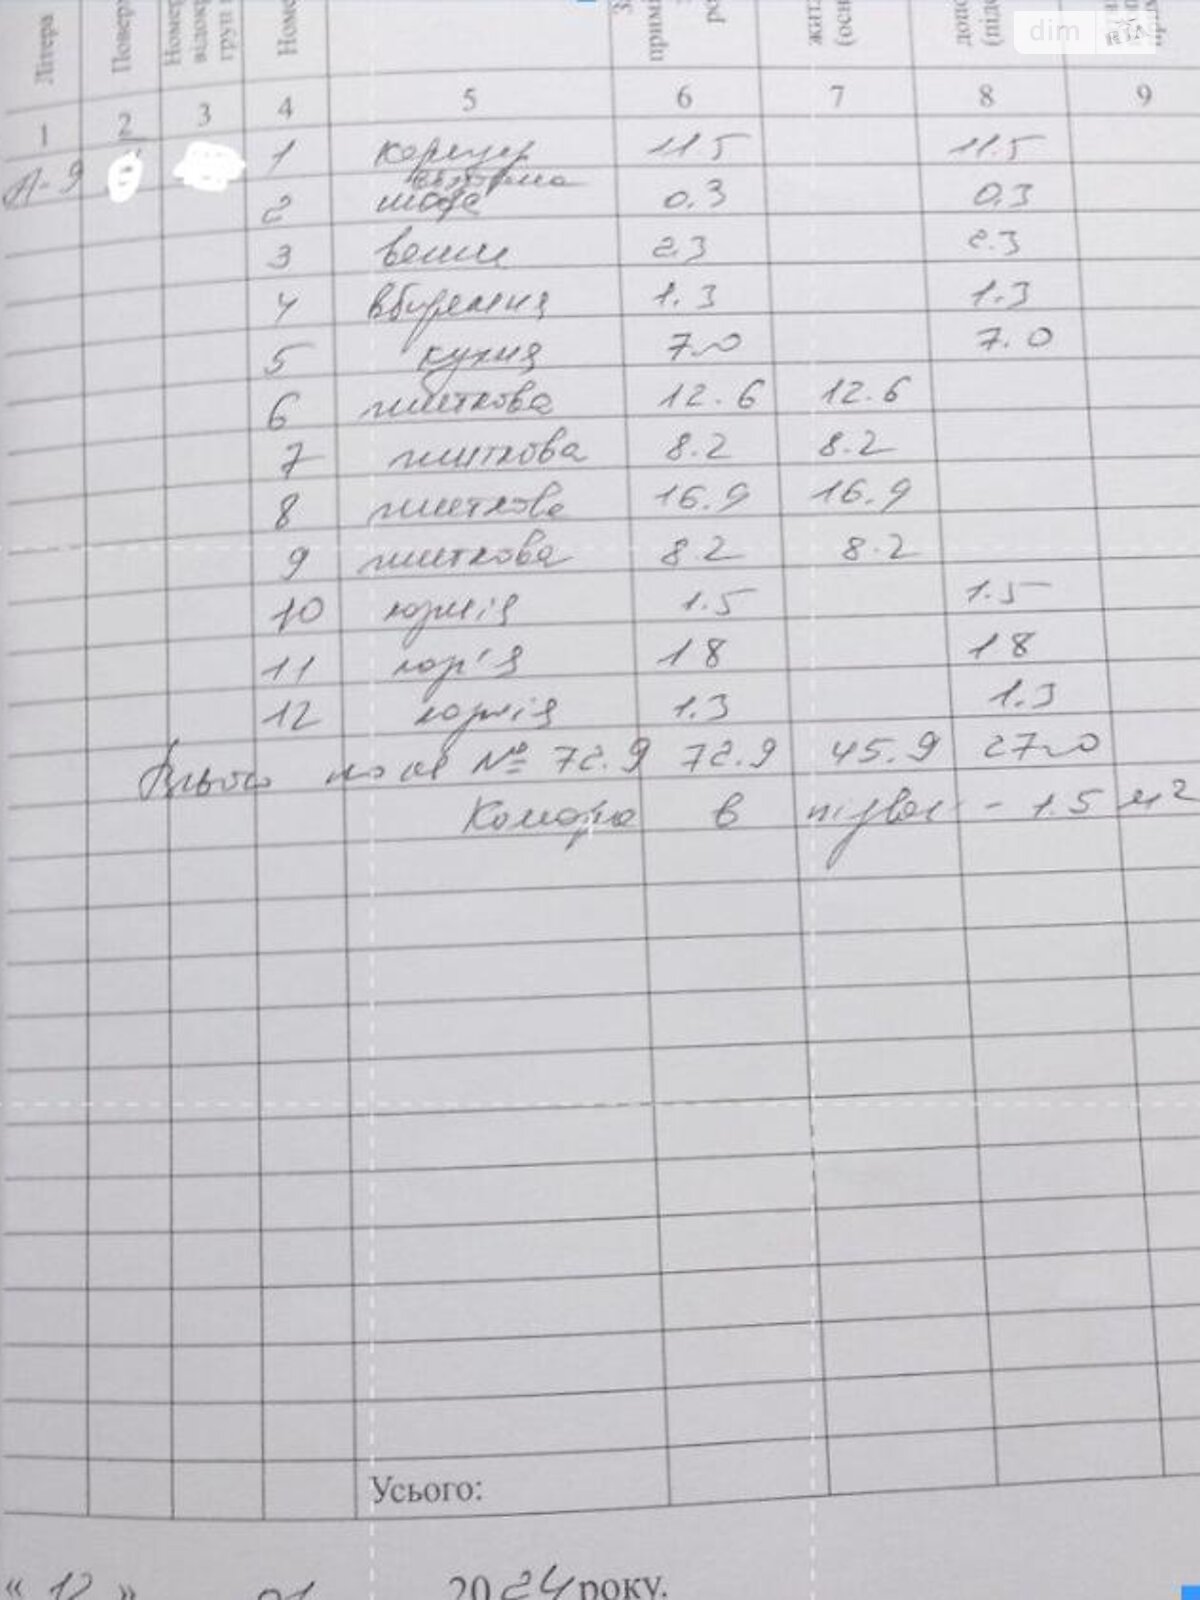 dim RIA
Літера Поверх Номер відокр груп Номе прими
1 2 3 4 5 6 7 8 9
А-9 1 коридор 11.5 11.5
вбудована
2 шафа 0.3 0.3
3 ванна 2.3 2.3
4 вбиральня 1.3 1.3
5 кухня 7.0 7.0
6 житкова 12.6 12.6
7 житкова 8.2 8.2
8 житкова 16.9 16.9
9 житкова 8.2 8.2
10 лоджія 1.5 1.5
11 лодж'я 1.8 1.8
12 лоджія 1.3 1.3
Всього по кв № 72.9 72.9 45.9 27.0
Комора в підвал - 1.5 м²
Усього:
"12" 01 2024 року.